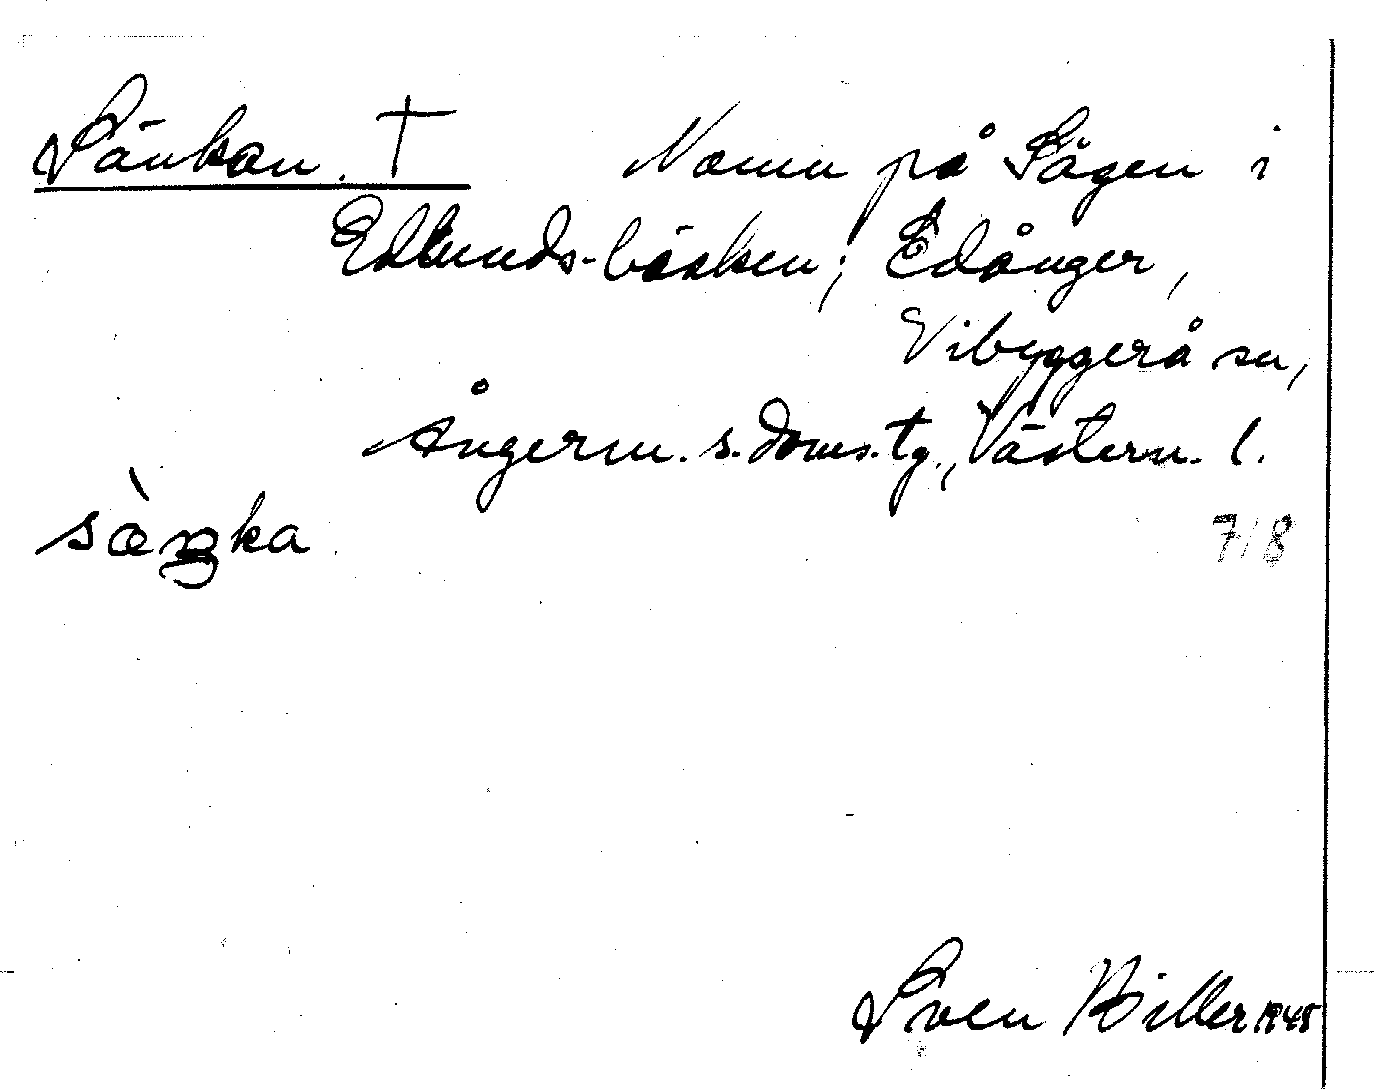 Sänkan. † Namn på Sågen i
Edlunds-bäcken; Edånger,
Vibyggerå sn,
Ångerm. s. doms. tg., Västern. l.
sàŋka
718
Sven Biller 1945